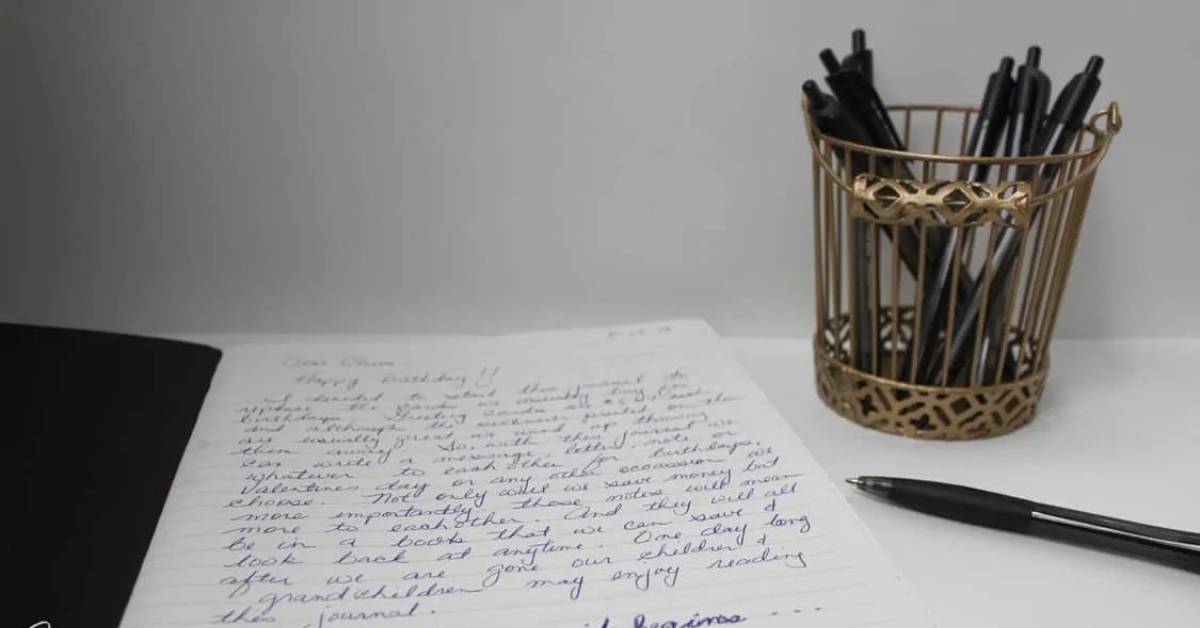 Dear
Happy Birthday!!
I decided to start this journal to
replace the cards we usually buy for
birthdays. Greeting cards are $5, each
and although the sentiments printed on them
are usually great we wind up throwing
them away. So, with this journal we
can write a message, letter, note or
whatever to each other for birthdays,
Valentines day or any other occassion we
choose. Not only will we save money but
more importantly these notes will mean
more to each other. And they will all
be in a book that we can save &
look back at anytime. One day long
after we are gone our children &
grandchildren may enjoy reading
this journal.
it begins ....